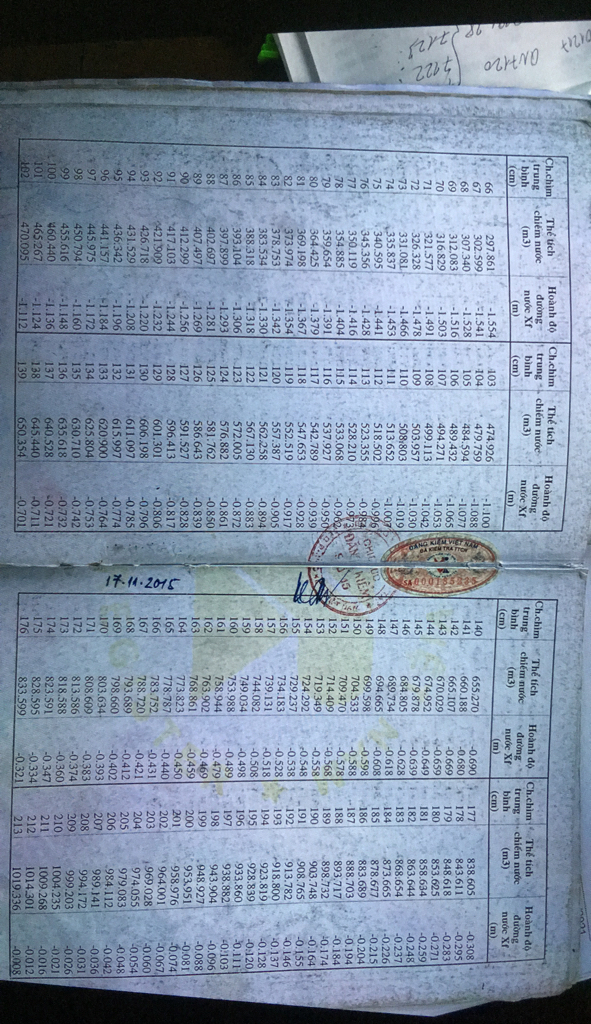 Ch.chìm trung bình (cm) Thể tích chiếm nước (m3) Hoành độ đường nước Xf (m) Ch.chìm trung bình (cm) Thể tích chiếm nước (m3) Hoành độ đường nước Xf (m)
66 297.861 -1.554 103 474.926 -1.100
67 302.599 -1.541 104 479.759 -1.088
68 307.340 -1.528 105 484.594 -1.077
69 312.083 -1.516 106 489.432 -1.065
70 316.829 -1.503 107 494.271 -1.053
71 321.577 -1.491 108 499.113 -1.042
72 326.328 -1.478 109 503.957 -1.030
73 331.081 -1.466 110 508.803 -1.019
74 335.837 -1.453 111 513.652 -1.007
75 340.595 -1.441 112 518.502 -0.996
76 345.356 -1.428 113 523.355 -0.984
77 350.119 -1.416 114 528.210
78 354.885 -1.404 115 533.068
79 359.654 -1.391 116 537.927 -0.950
80 364.425 -1.379 117 542.789 -0.939
81 369.198 -1.367 118 547.653 -0.928
82 373.974 -1.354 119 552.519 -0.917
83 378.753 -1.342 120 557.387 -0.905
84 383.534 -1.330 121 562.258 -0.894
85 388.318 -1.318 122 567.130 -0.883
86 393.104 -1.306 123 572.005 -0.872
87 397.899 -1.293 124 576.882 -0.861
88 402.697 -1.281 125 581.762 -0.850
89 407.497 -1.269 126 586.643 -0.839
90 412.299 -1.256 127 591.527 -0.828
91 417.103 -1.244 128 596.413 -0.817
92 421.909 -1.232 129 601.301 -0.806
93 426.718 -1.220 130 606.198 -0.796
94 431.529 -1.208 131 611.097 -0.785
95 436.342 -1.196 132 615.997 -0.774
96 441.157 -1.184 133 620.900 -0.764
97 445.975 -1.172 134 625.804 -0.753
98 450.794 -1.160 135 630.710 -0.742
99 455.616 -1.148 136 635.618 -0.732
100 460.440 -1.136 137 640.528 -0.721
101 465.267 -1.124 138 645.440 -0.711
102 470.095 -1.112 139 650.354 -0.701
ĐĂNG KIỂM VIỆT NAM
ĐÃ KIỂM TRA TỊCH
17-11-2015
Ch.chìm trung bình (cm) Thể tích chiếm nước (m3) Hoành độ đường nước Xf (m) Ch.chìm trung bình (cm) Thể tích chiếm nước (m3) Hoành độ đường nước Xf (m)
140 655.270 -0.690 177 838.605 -0.308
141 660.188 -0.680 178 843.611 -0.295
142 665.107 -0.669 179 848.618 -0.283
143 670.029 -0.659 180 853.625 -0.271
144 674.952 -0.649 181 858.634 -0.259
145 679.878 -0.639 182 863.644 -0.248
146 684.805 -0.628 183 868.654 -0.237
147 689.734 -0.618 184 873.665 -0.226
148 694.666 -0.608 185 878.677 -0.215
149 699.598 -0.598 186 883.689 -0.204
150 704.533 -0.588 187 888.703 -0.194
151 709.470 -0.578 188 893.717 -0.184
152 714.409 -0.568 189 898.732 -0.174
153 719.349 -0.558 190 903.748 -0.164
154 724.292 -0.548 191 908.765 -0.155
155 729.237 -0.538 192 913.782 -0.146
156 734.183 -0.528 193 918.800 -0.137
157 739.131 -0.518 194 923.819 -0.128
158 744.082 -0.508 195 928.839 -0.120
159 749.034 -0.498 196 933.860 -0.111
160 753.988 -0.489 197 938.882 -0.103
161 758.944 -0.479 198 943.904 -0.096
162 763.902 -0.469 199 948.927 -0.088
163 768.861 -0.459 200 953.951 -0.081
164 773.823 -0.450 201 958.976 -0.074
165 778.787 -0.440 202 964.001 -0.067
166 783.752 -0.431 203 969.028 -0.060
167 788.720 -0.421 204 974.055 -0.054
168 793.689 -0.412 205 979.083 -0.048
169 798.660 -0.402 206 984.112 -0.042
170 803.634 -0.393 207 989.141 -0.036
171 808.609 -0.383 208 994.172 -0.031
172 813.586 -0.374 209 999.203 -0.026
173 818.588 -0.360 210 1004.235 -0.021
174 823.591 -0.347 211 1009.268 -0.016
175 828.595 -0.334 212 1014.301 -0.012
176 833.599 -0.321 213 1019.336 -0.008
QN7120
7122
7125